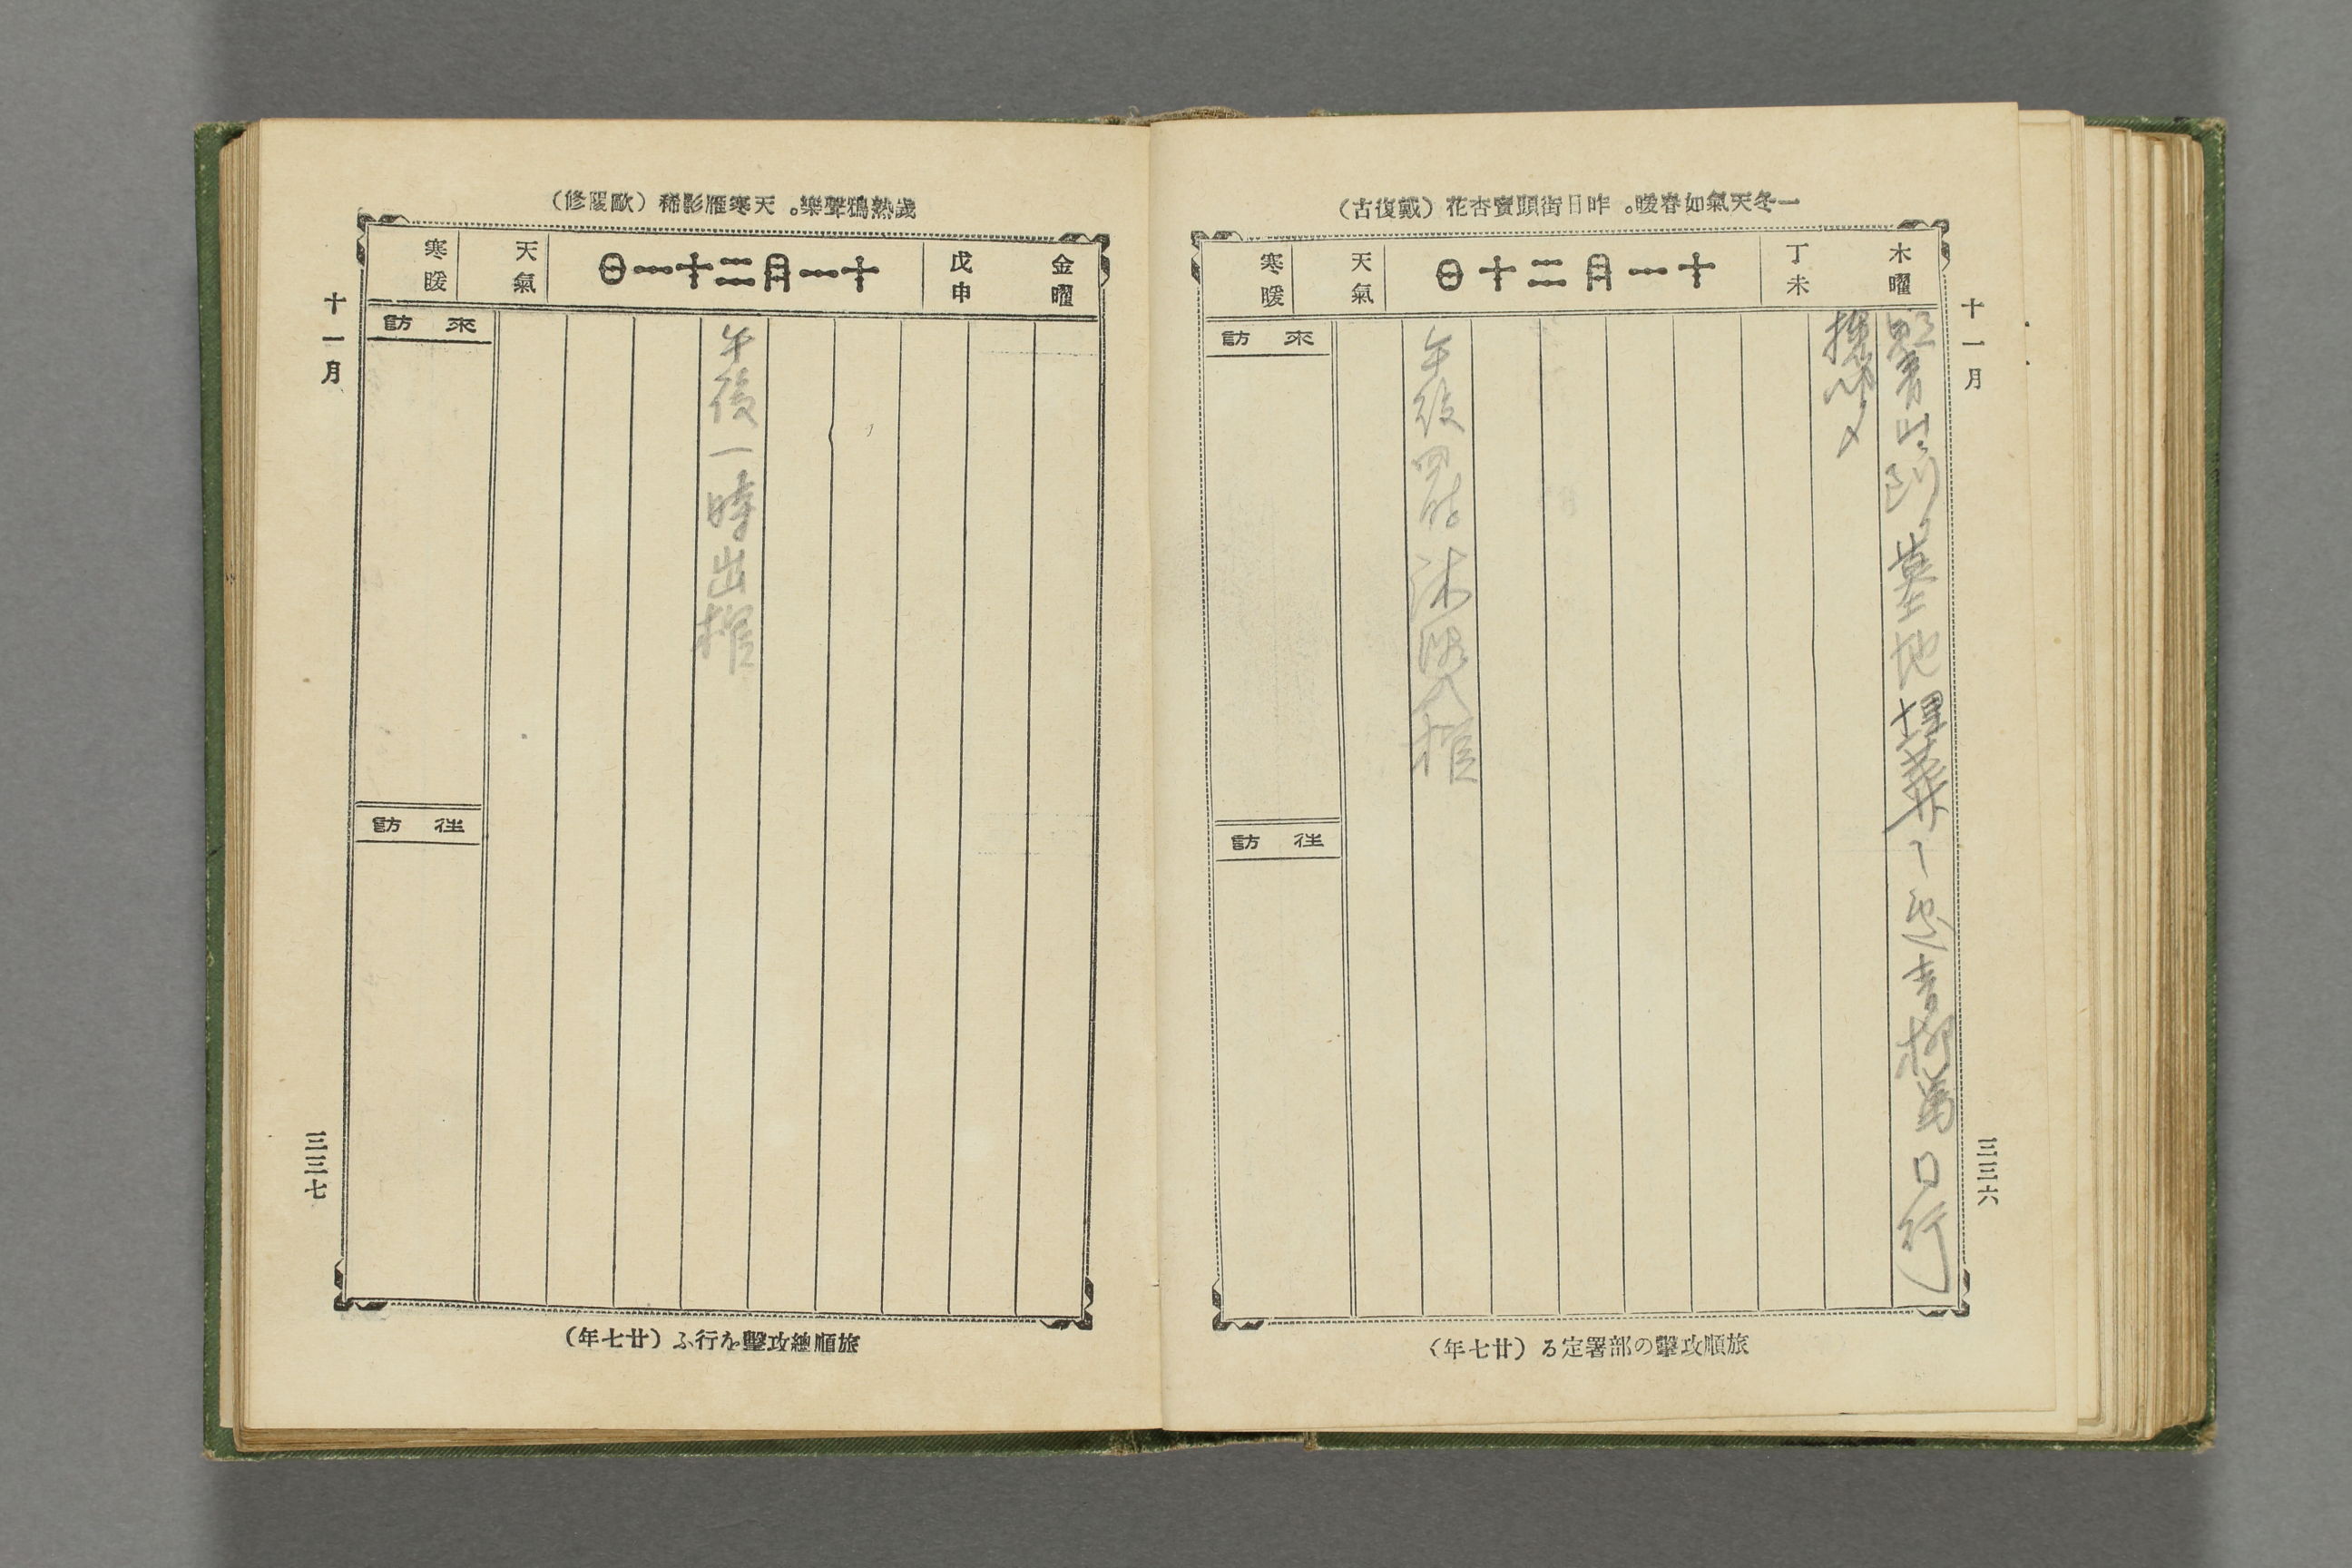 一冬天氣如春暖。昨日街頭賣杏花(戴復古)
木曜
丁未
十一月二十日
天氣
寒暖
十一月
三三六
青山
墓地埋葬
青柳
口行
午後四時沐浴入棺
來訪
往訪
旅順攻擊の部署定る(廿七年)
歲熟鴉聲樂。天寒雁影稀(歐陽修)
金曜
戊申
十一月二十一日
天氣
寒暖
午後一時出棺
來訪
往訪
十一月
三三七
旅順總攻擊を行ふ(廿七年)